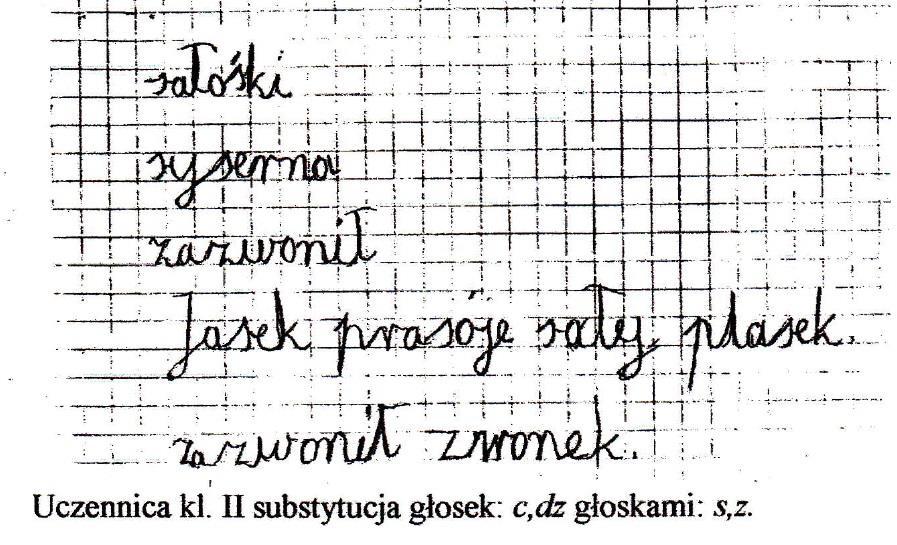 sałóśki
sysenna
zazwonił
Jasek prasóje sały plasek.
zazwonił zwonek.
Uczennica kl. II substytucja głosek: c,dz głoskami: s,z.